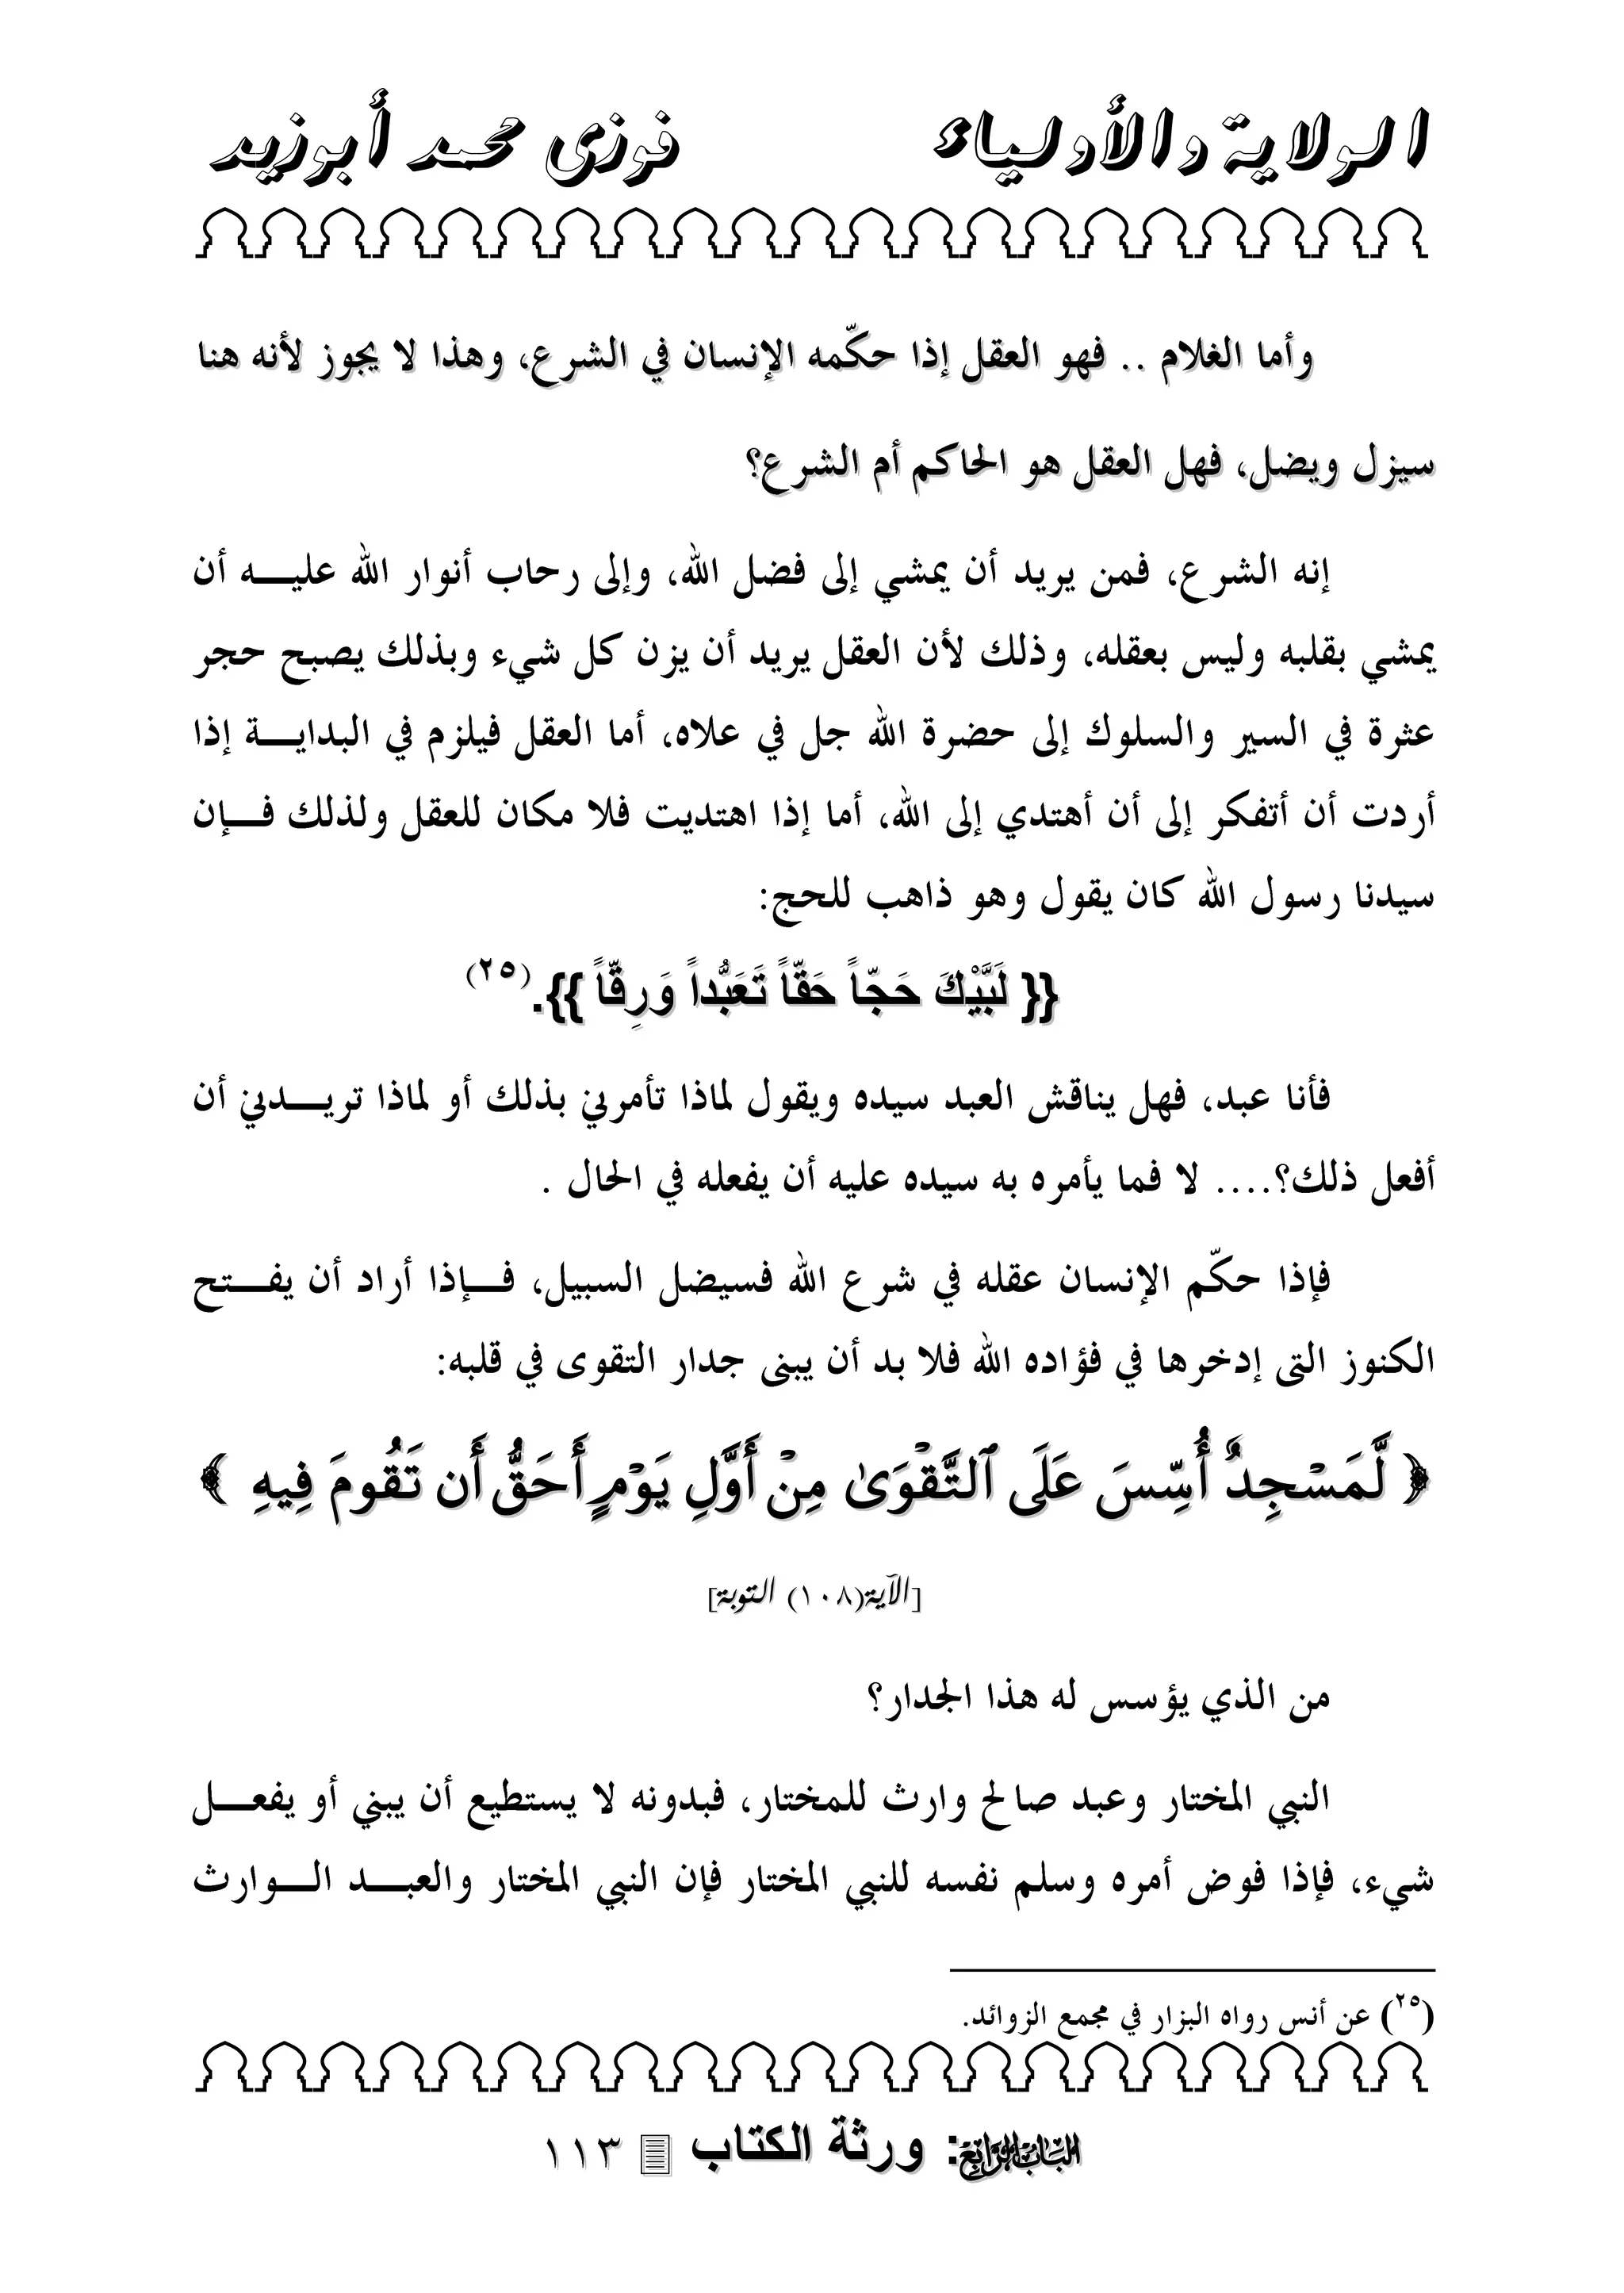 الولاية والأولياء فوزى محمد أبوزيد
وأما الغلام .. فهو العقل إذا حكّمه الإنسان في الشرع، وهذا لا يجوز لأنه هنا
سيزل ويضل، فهل العقل هو الحاكم أم الشرع؟
إنه الشرع، فمن يريد أن يمشي إلى فضل الله، وإلى رحاب أنوار الله عليـــه أن
يمشي بقلبه وليس بعقله، وذلك لأن العقل يريد أن يزن كل شيء وبذلك يصبح حجر
عثرة في السير والسلوك إلى حضرة الله جل في علاه، أما العقل فيلزم في البدايـــة إذا
أردت أن أتفكر إلى أن أهتدي إلى الله، أما إذا اهتديت فلا مكان للعقل ولذلك فـــإن
سيدنا رسول الله كان يقول وهو ذاهب للحج:
{{ لَبَّيْكَ حَجّاً حَقّاً تَعَبُّداً وَرِقّاً }}.(٢٥)
فأنا عبد، فهل يناقش العبد سيده ويقول لماذا تأمرني بذلك أو لماذا تريـــدني أن
أفعل ذلك؟.... لا فما يأمره به سيده عليه أن يفعله في الحال .
فإذا حكّم الإنسان عقله في شرع الله فسيضل السبيل، فـــإذا أراد أن يفـــتح
الكنوز التى إدخرها في فؤاده الله فلا بد أن يبنى جدار التقوى في قلبه:
﴿ لَّمَسْجِدٌ أُسِّسَ عَلَى ٱلتَّقْوَىٰ مِنْ أَوَّلِ يَوْمٍ أَحَقُّ أَن تَقُومَ فِيهِ ﴾
[الآية(١٠٨) التوبة]
من الذي يؤسس له هذا الجدار؟
النبي المختار وعبد صالح وارث للمختار، فبدونه لا يستطيع أن يبني أو يفعـــل
شيء، فإذا فوض أمره وسلم نفسه للنبي المختار فإن النبي المختار والعبـــد الـــوارث
(٢٥) عن أنس رواه البزار في مجمع الزوائد.
الباب الرابع: ورثة الكتاب ١١٣